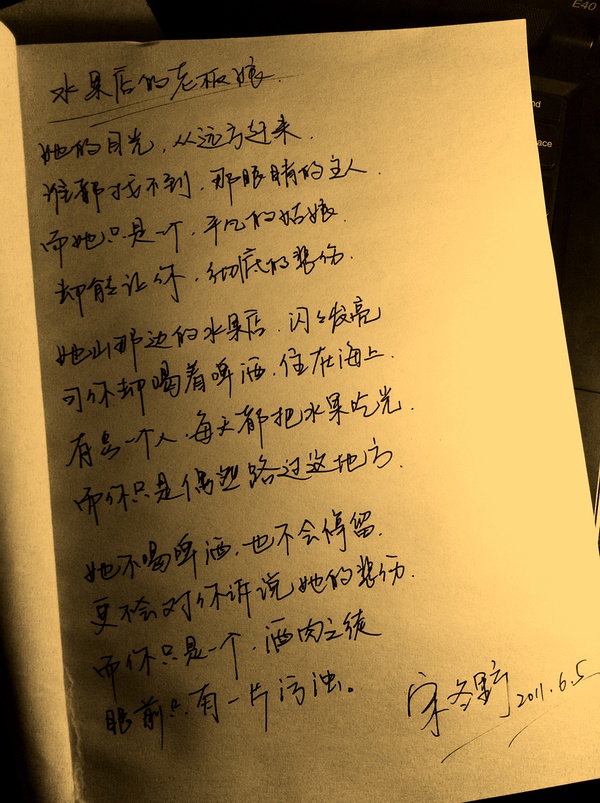 水果店的老板娘
她的目光，从远方赶来．
谁都找不到．那眼睛的主人．
而她只是一个．平凡的姑娘．
却能让你．彻底的悲伤．
她山那边的水果店．闪闪发亮
可你却喝着啤酒．住在海上．
有另一个人．每天都把水果吃光．
而你只是偶然路过这地方．
她不喝啤酒．也不会停留．
更不会对你诉说她的悲伤．
而你只是一个．酒肉之徒
眼前只有一片污浊。
宋冬野 2011.6.5
E40
nd
ace